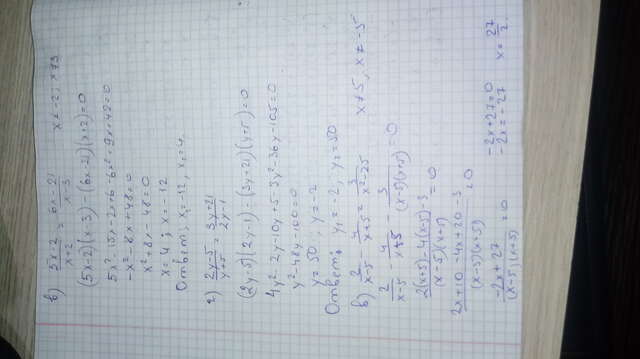 б) (5x-2)/(x+2) = (6x-21)/(x-3) x≠-2, x≠3
(5x-2)(x-3) - (6x-21)(x+2)=0
5x²-15x-2x+6-6x²+9x+42=0
-x²-8x+48=0
x²+8x-48=0
x=4; x=-12
Ответ: x₁=-12, x₂=4.
г) (2y-5)/(y+5) = (3y+21)/(2y-1)
(2y-5)(2y-1) - (3y+21)(y+5)=0
4y²-2y-10y+5-3y²-36y-105=0
y²-48y-100=0
y=50; y=-2
Ответ: y₁=-2, y₂=50
в) 2/(x-5) - 4/(x+5) = 3/(x²-25) x≠5, x≠-5
2/(x-5) - 4/(x+5) - 3/((x-5)(x+5)) =0
(2(x+5)-4(x-5)-3)/((x-5)(x+5)) =0
(2x+10-4x+20-3)/((x-5)(x+5)) =0
(-2x+27)/((x-5)(x+5)) =0 -2x+27=0
-2x=-27 x=27/2.